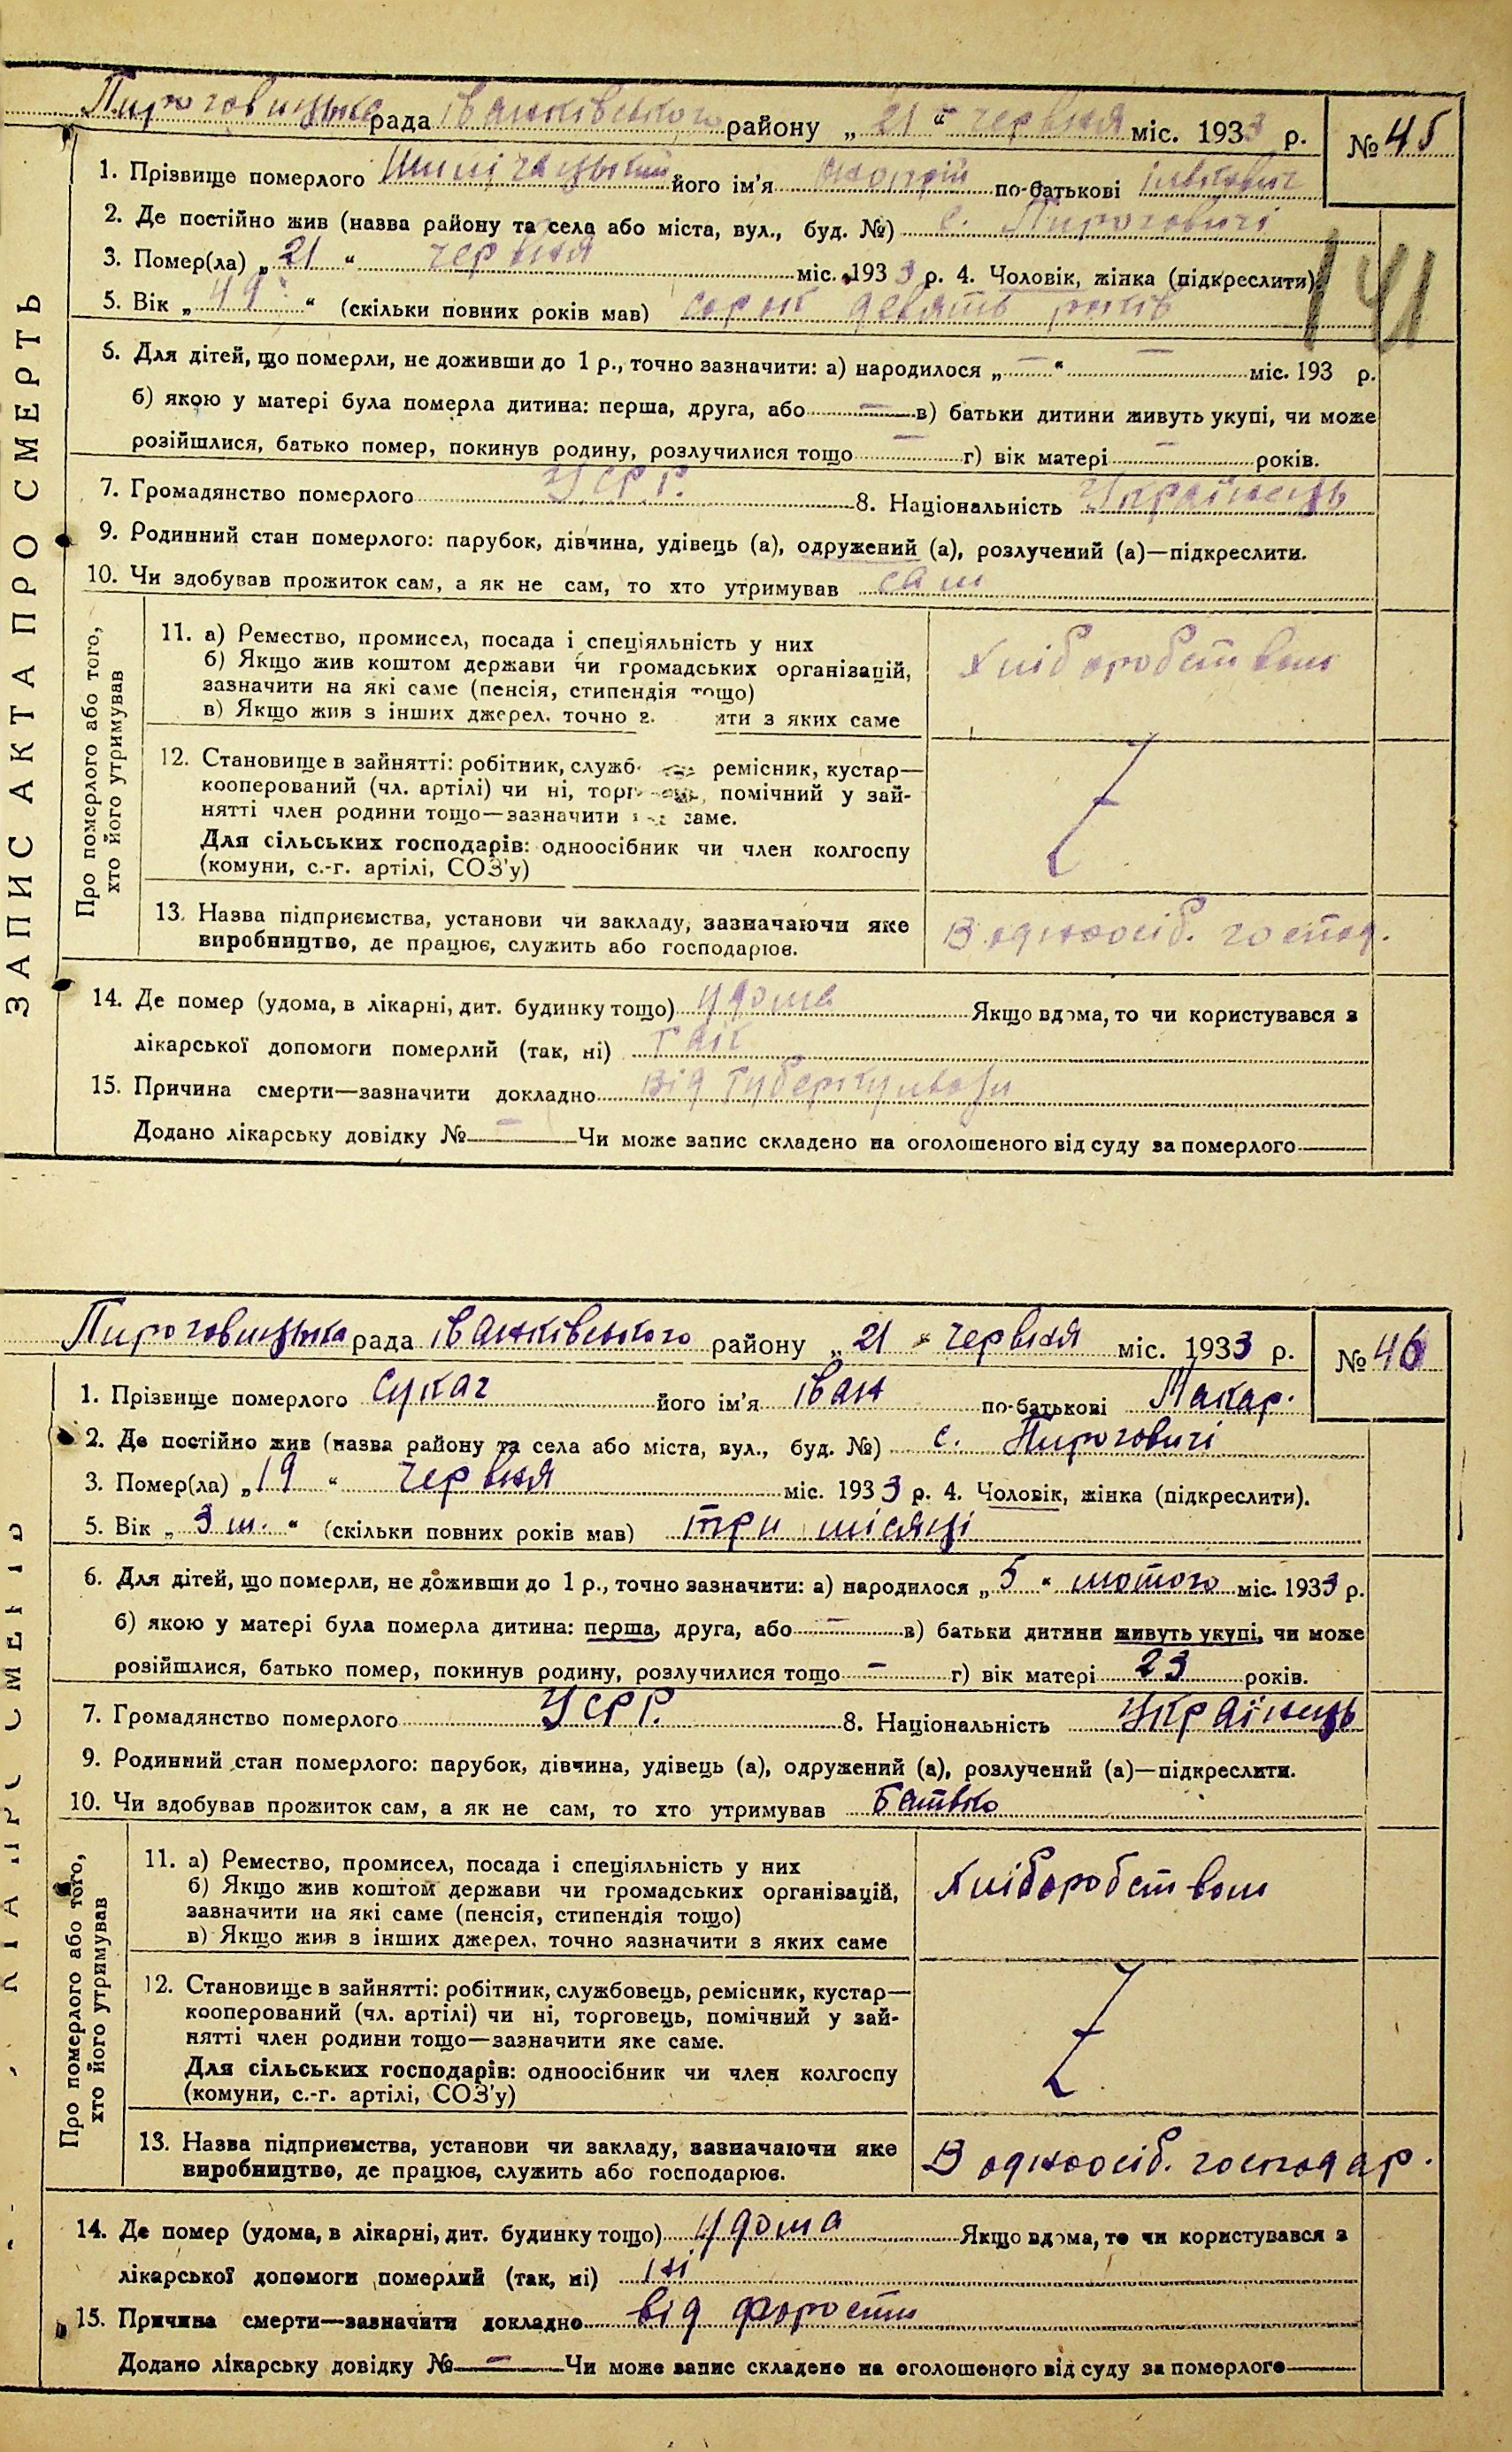 ЗАПИС АКТА ПРО СМЕРТЬ
Пироговицька рада Іванківського району „21“ червня міс. 1933 р. № 45
1. Прізвище померлого його ім’я по-батькові
2. Де постійно жив (назва району та села або міста, вул., буд. №) с. Пироговичі
3. Помер(ла) „21“ червня міс. 1933 р. 4. Чоловік, жінка (підкреслити).
141
5. Вік „49“ (скільки повних років мав) сорок девять років
6. Для дітей, що померли, не доживши до 1 р., точно зазначити: а) народилося „—“ — міс. 193 р.
б) якою у матері була померла дитина: перша, друга, або — в) батьки дитини живуть укупі, чи може
розійшлися, батько помер, покинув родину, розлучилися тощо — г) вік матері — років.
7. Громадянство померлого УСРР. 8. Національність Українець
9. Родинний стан померлого: парубок, дівчина, удівець (а), одружений (а), розлучений (а)—підкреслити.
10. Чи здобував прожиток сам, а як не сам, то хто утримував сам
Про померлого або того,
хто його утримував
11. а) Ремество, промисел, посада і спеціяльність у них
б) Якщо жив коштом держави чи громадських організацій,
зазначити на які саме (пенсія, стипендія тощо)
в) Якщо жив з інших джерел, точно з ити з яких саме
Хліборобством
12. Становище в зайнятті: робітник, служб ремісник, кустар—
кооперований (чл. артілі) чи ні, торг помічний у зай-
нятті член родини тощо—зазначити саме.
Для сільських господарів: одноосібник чи член колгоспу
(комуни, с.-г. артілі, СОЗ’у)
13. Назва підприємства, установи чи закладу, зазначаючи яке
виробництво, де працює, служить або господарює.
В одноосіб. господ.
14. Де помер (удома, в лікарні, дит. будинку тощо) удома Якщо вдома, то чи користувався з
лікарської допомоги померлий (так, ні) так
15. Причина смерти—зазначити докладно від туберкульози
Додано лікарську довідку № — Чи може запис складено на оголошеного від суду за померлого
Пироговицька рада Іванківського району „21“ червня міс. 1933 р. № 46
1. Прізвище померлого Сукач його ім’я Іван по-батькові Макар.
2. Де постійно жив (назва району та села або міста, вул., буд. №) с. Пироговичі
3. Помер(ла) „19“ червня міс. 1933 р. 4. Чоловік, жінка (підкреслити).
5. Вік „3 м.“ (скільки повних років мав) три місяці
6. Для дітей, що померли, не доживши до 1 р., точно зазначити: а) народилося „5“ лютого міс. 1933 р.
б) якою у матері була померла дитина: перша, друга, або — в) батьки дитини живуть укупі, чи може
розійшлися, батько помер, покинув родину, розлучилися тощо — г) вік матері 23 років.
7. Громадянство померлого УСРР. 8. Національність Українець
9. Родинний стан померлого: парубок, дівчина, удівець (а), одружений (а), розлучений (а)—підкреслити.
10. Чи здобував прожиток сам, а як не сам, то хто утримував Батько
Про померлого або того,
хто його утримував
11. а) Ремество, промисел, посада і спеціяльність у них
б) Якщо жив коштом держави чи громадських організацій,
зазначити на які саме (пенсія, стипендія тощо)
в) Якщо жив з інших джерел, точно зазначити з яких саме
Хліборобством
12. Становище в зайнятті: робітник, службовець, ремісник, кустар—
кооперований (чл. артілі) чи ні, торговець, помічний у зай-
нятті член родини тощо—зазначити яке саме.
Для сільських господарів: одноосібник чи член колгоспу
(комуни, с.-г. артілі, СОЗ’у)
13. Назва підприємства, установи чи закладу, зазначаючи яке
виробництво, де працює, служить або господарює.
В одноосіб. господар.
14. Де помер (удома, в лікарні, дит. будинку тощо) удома Якщо вдома, то чи користувався з
лікарської допомоги померлий (так, ні) ні
15. Причина смерти—зазначити докладно від
Додано лікарську довідку № — Чи може запис складено на оголошеного від суду за померлого